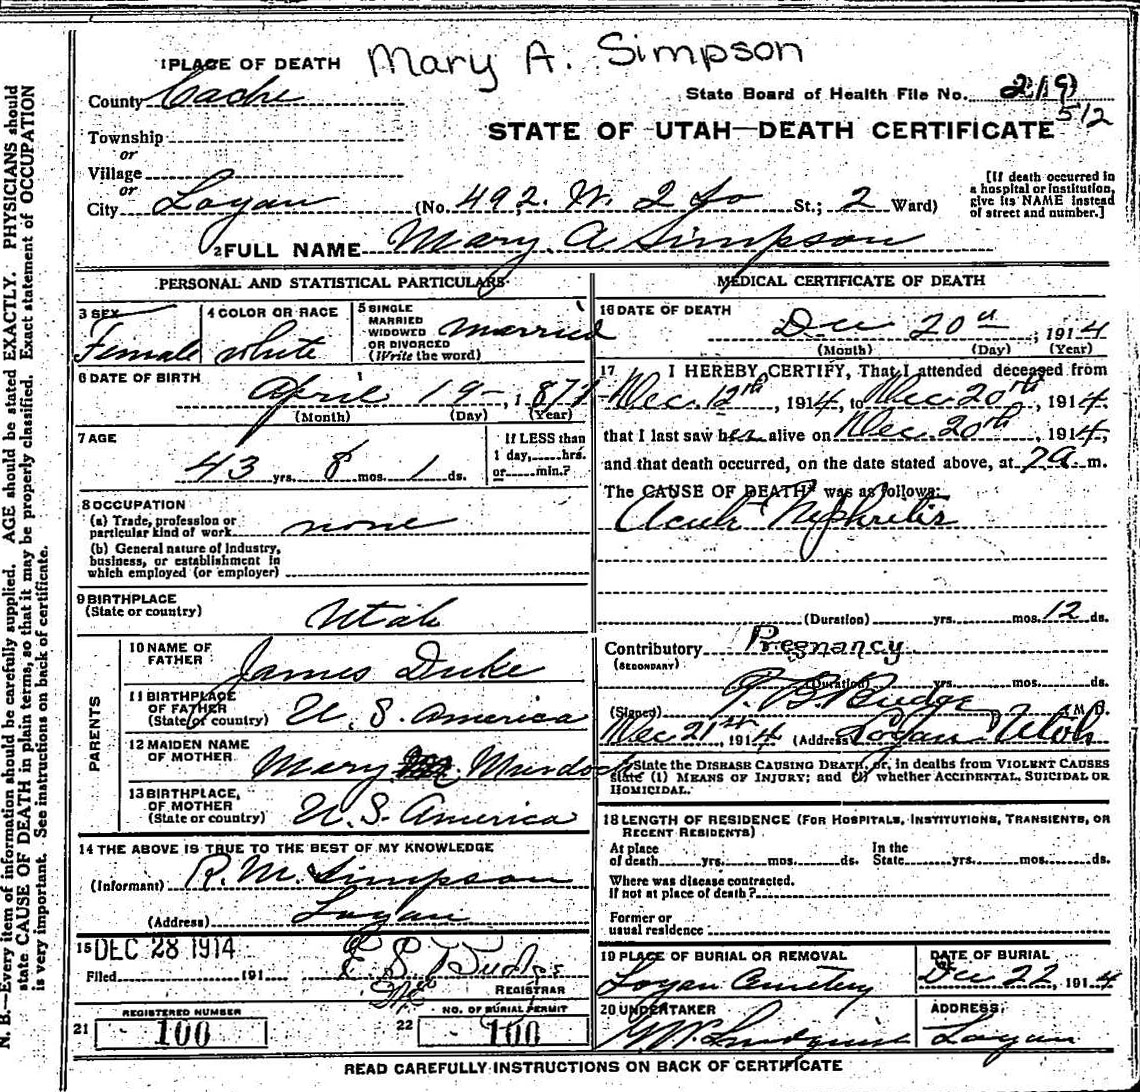 Mary A. Simpson
1 PLACE OF DEATH
County Cache
State Board of Health File No. 219
512
STATE OF UTAH—DEATH CERTIFICATE
Township
or
Village
or
City Logan (No. 492 W. 2 So St.; 2 Ward)
[If death occurred in a hospital or institution, give its NAME instead of street and number.]
2 FULL NAME Mary A Simpson
PERSONAL AND STATISTICAL PARTICULARS
3 SEX Female
4 COLOR OR RACE white
5 SINGLE MARRIED WIDOWED OR DIVORCED (Write the word) Married
6 DATE OF BIRTH
April 19—, 1871
(Month) (Day) (Year)
7 AGE
43 yrs. 8 mos. 1 ds.
If LESS than 1 day, hrs. or min.?
8 OCCUPATION
(a) Trade, profession or particular kind of work none
(b) General nature of industry, business, or establishment in which employed (or employer)
9 BIRTHPLACE
(State or country) Utah
PARENTS
10 NAME OF FATHER James Duke
11 BIRTHPLACE OF FATHER (State or country) U. S. America
12 MAIDEN NAME OF MOTHER Mary Murdock
13 BIRTHPLACE, OF MOTHER (State or country) U. S. America
14 THE ABOVE IS TRUE TO THE BEST OF MY KNOWLEDGE
(Informant) R. M. Simpson
(Address) Logan
15 DEC 28 1914
Filed 191
REGISTRAR
REGISTERED NUMBER
21 100
NO. OF BURIAL PERMIT
22 100
MEDICAL CERTIFICATE OF DEATH
16 DATE OF DEATH
Dec 20th, 1914
(Month) (Day) (Year)
17 I HEREBY CERTIFY, That I attended deceased from
Dec. 12th, 1914, to Dec 20th, 1914,
that I last saw her alive on Dec. 20th, 1914,
and that death occurred, on the date stated above, at 7 a m.
The CAUSE OF DEATH* was as follows:
Acute Nephritis
(Duration) yrs. mos. 12 ds.
Contributory Pregnancy
(SECONDARY)
(Duration) yrs. mos. ds.
(Signed) Budge M. D.
Dec 21st, 1914 (Address) Logan Utah
*State the DISEASE CAUSING DEATH, or, in deaths from VIOLENT CAUSES
state (1) MEANS OF INJURY; and (2) whether ACCIDENTAL, SUICIDAL OR
HOMICIDAL.
18 LENGTH OF RESIDENCE (FOR HOSPITALS, INSTITUTIONS, TRANSIENTS, OR
RECENT RESIDENTS)
At place of death yrs. mos. ds. In the State yrs. mos. ds.
Where was disease contracted.
If not at place of death?
Former or
usual residence
19 PLACE OF BURIAL OR REMOVAL
Logan Cemetery
DATE OF BURIAL
Dec 22, 1914
20 UNDERTAKER
Lundquist
ADDRESS
Logan
READ CAREFULLY INSTRUCTIONS ON BACK OF CERTIFICATE
N. B.—Every item of information should be carefully supplied. AGE should be stated EXACTLY. PHYSICIANS should
state CAUSE OF DEATH in plain terms, so that it may be properly classified. Exact statement of OCCUPATION
is very important. See instructions on back of certificate.